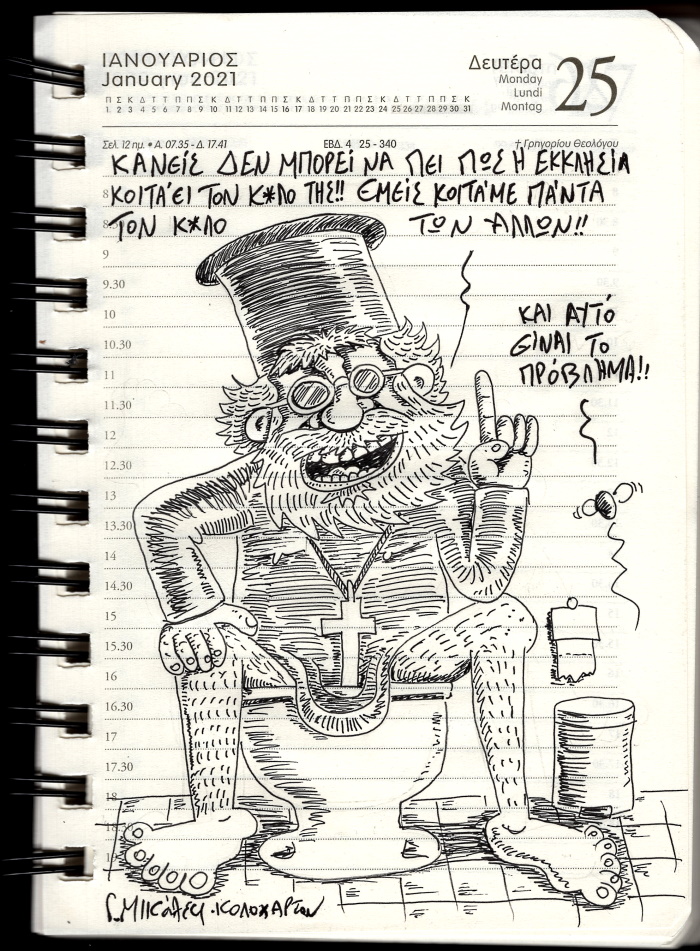 ΙΑΝΟΥΑΡΙΟΣ
January 2021
Π Σ Κ Δ Τ Τ Π Π Σ Κ Δ Τ Τ Π Π Σ Κ Δ Τ Τ Π Π Σ Κ Δ Τ Τ Π Π Σ Κ
1 2 3 4 5 6 7 8 9 10 11 12 13 14 15 16 17 18 19 20 21 22 23 24 25 26 27 28 29 30 31
Δευτέρα
Monday
Lundi
Montag
25
Σελ. 12 ημ. • Α. 07.35 - Δ. 17.41
ΕΒΔ. 4 25 - 340
† Γρηγορίου Θεολόγου
ΚΑΝΕΙΣ ΔΕΝ ΜΠΟΡΕΙ ΝΑ ΠΕΙ ΠΩΣ Η ΕΚΚΛΗΣΙΑ
ΚΟΙΤΑΕΙ ΤΟΝ Κ*ΛΟ ΤΗΣ!! ΕΜΕΙΣ ΚΟΙΤΑΜΕ ΠΑΝΤΑ
ΤΟΝ Κ*ΛΟ ΤΩΝ ΑΛΛΩΝ!!
ΚΑΙ ΑΥΤΟ
ΕΙΝΑΙ ΤΟ
ΠΡΟΒΛΗΜΑ!!
8
9
9.30
10
10.30
11
11.30
12
12.30
13
13.30
14
14.30
15
15.30
16
16.30
17
17.30
18